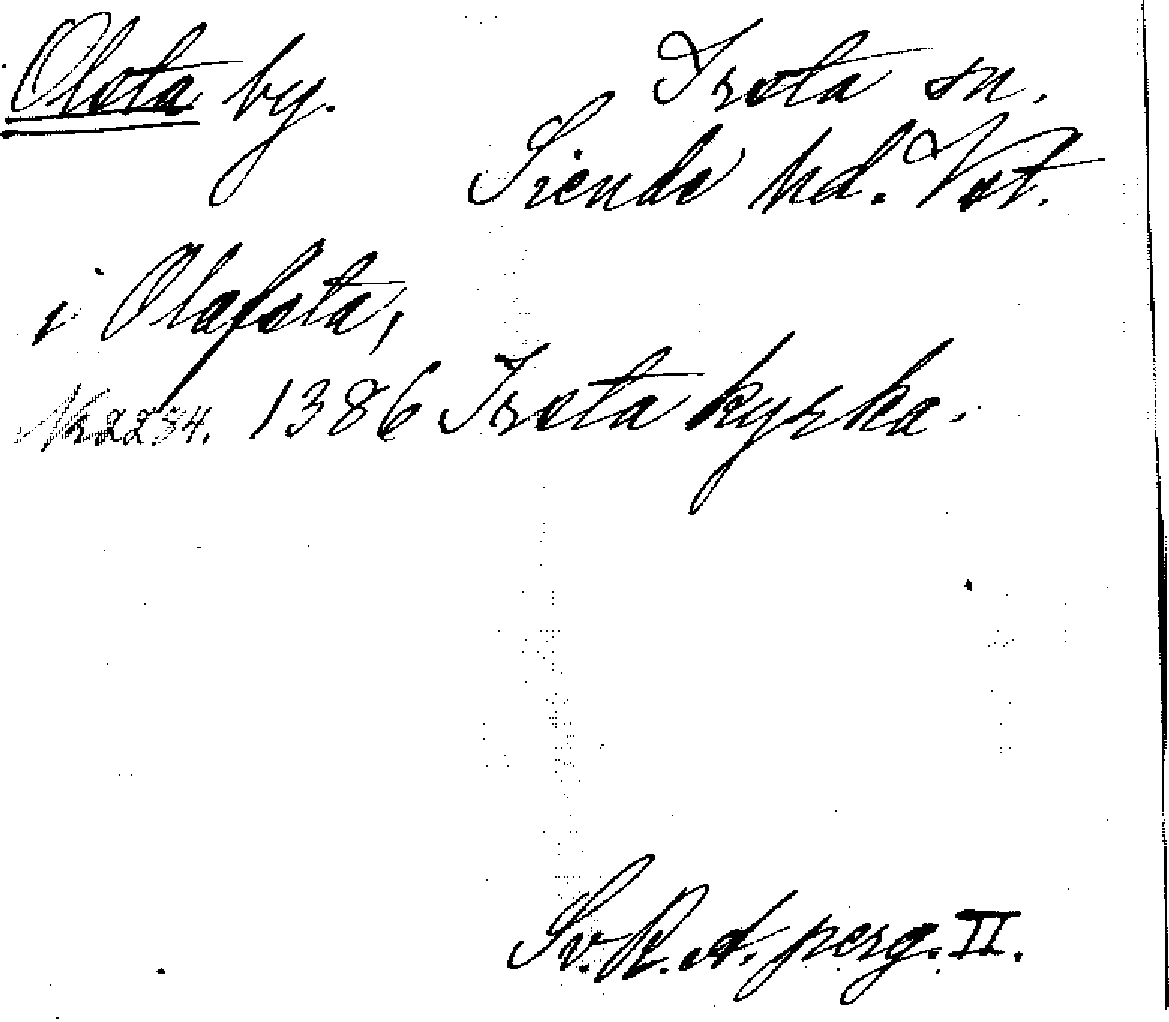 Olsta by. Irsta sn.
Siende hd. Vst.
i Olafsta,
Nr 2234. 1386 Irsta kyrka.
Sv. R. A. perg. II.